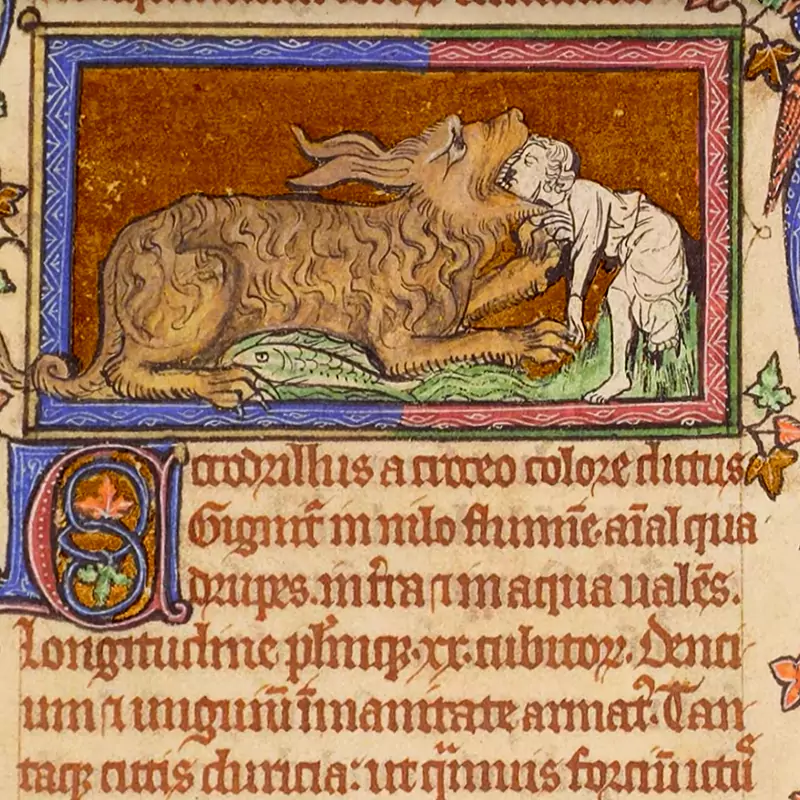 Cocodrillus a croceo colore dictus
Gignit᷑ in nilo flumīe aīal qua
drupes. in t᷑ra ⁊ in aqua ualēs.
Longitudine plerūq; xx. cubitoꝝ. Denci
um ⁊ unguiū īmanitate armat᷑. Tan
taq; cutis duricia: ut q̄muis forciū ictū